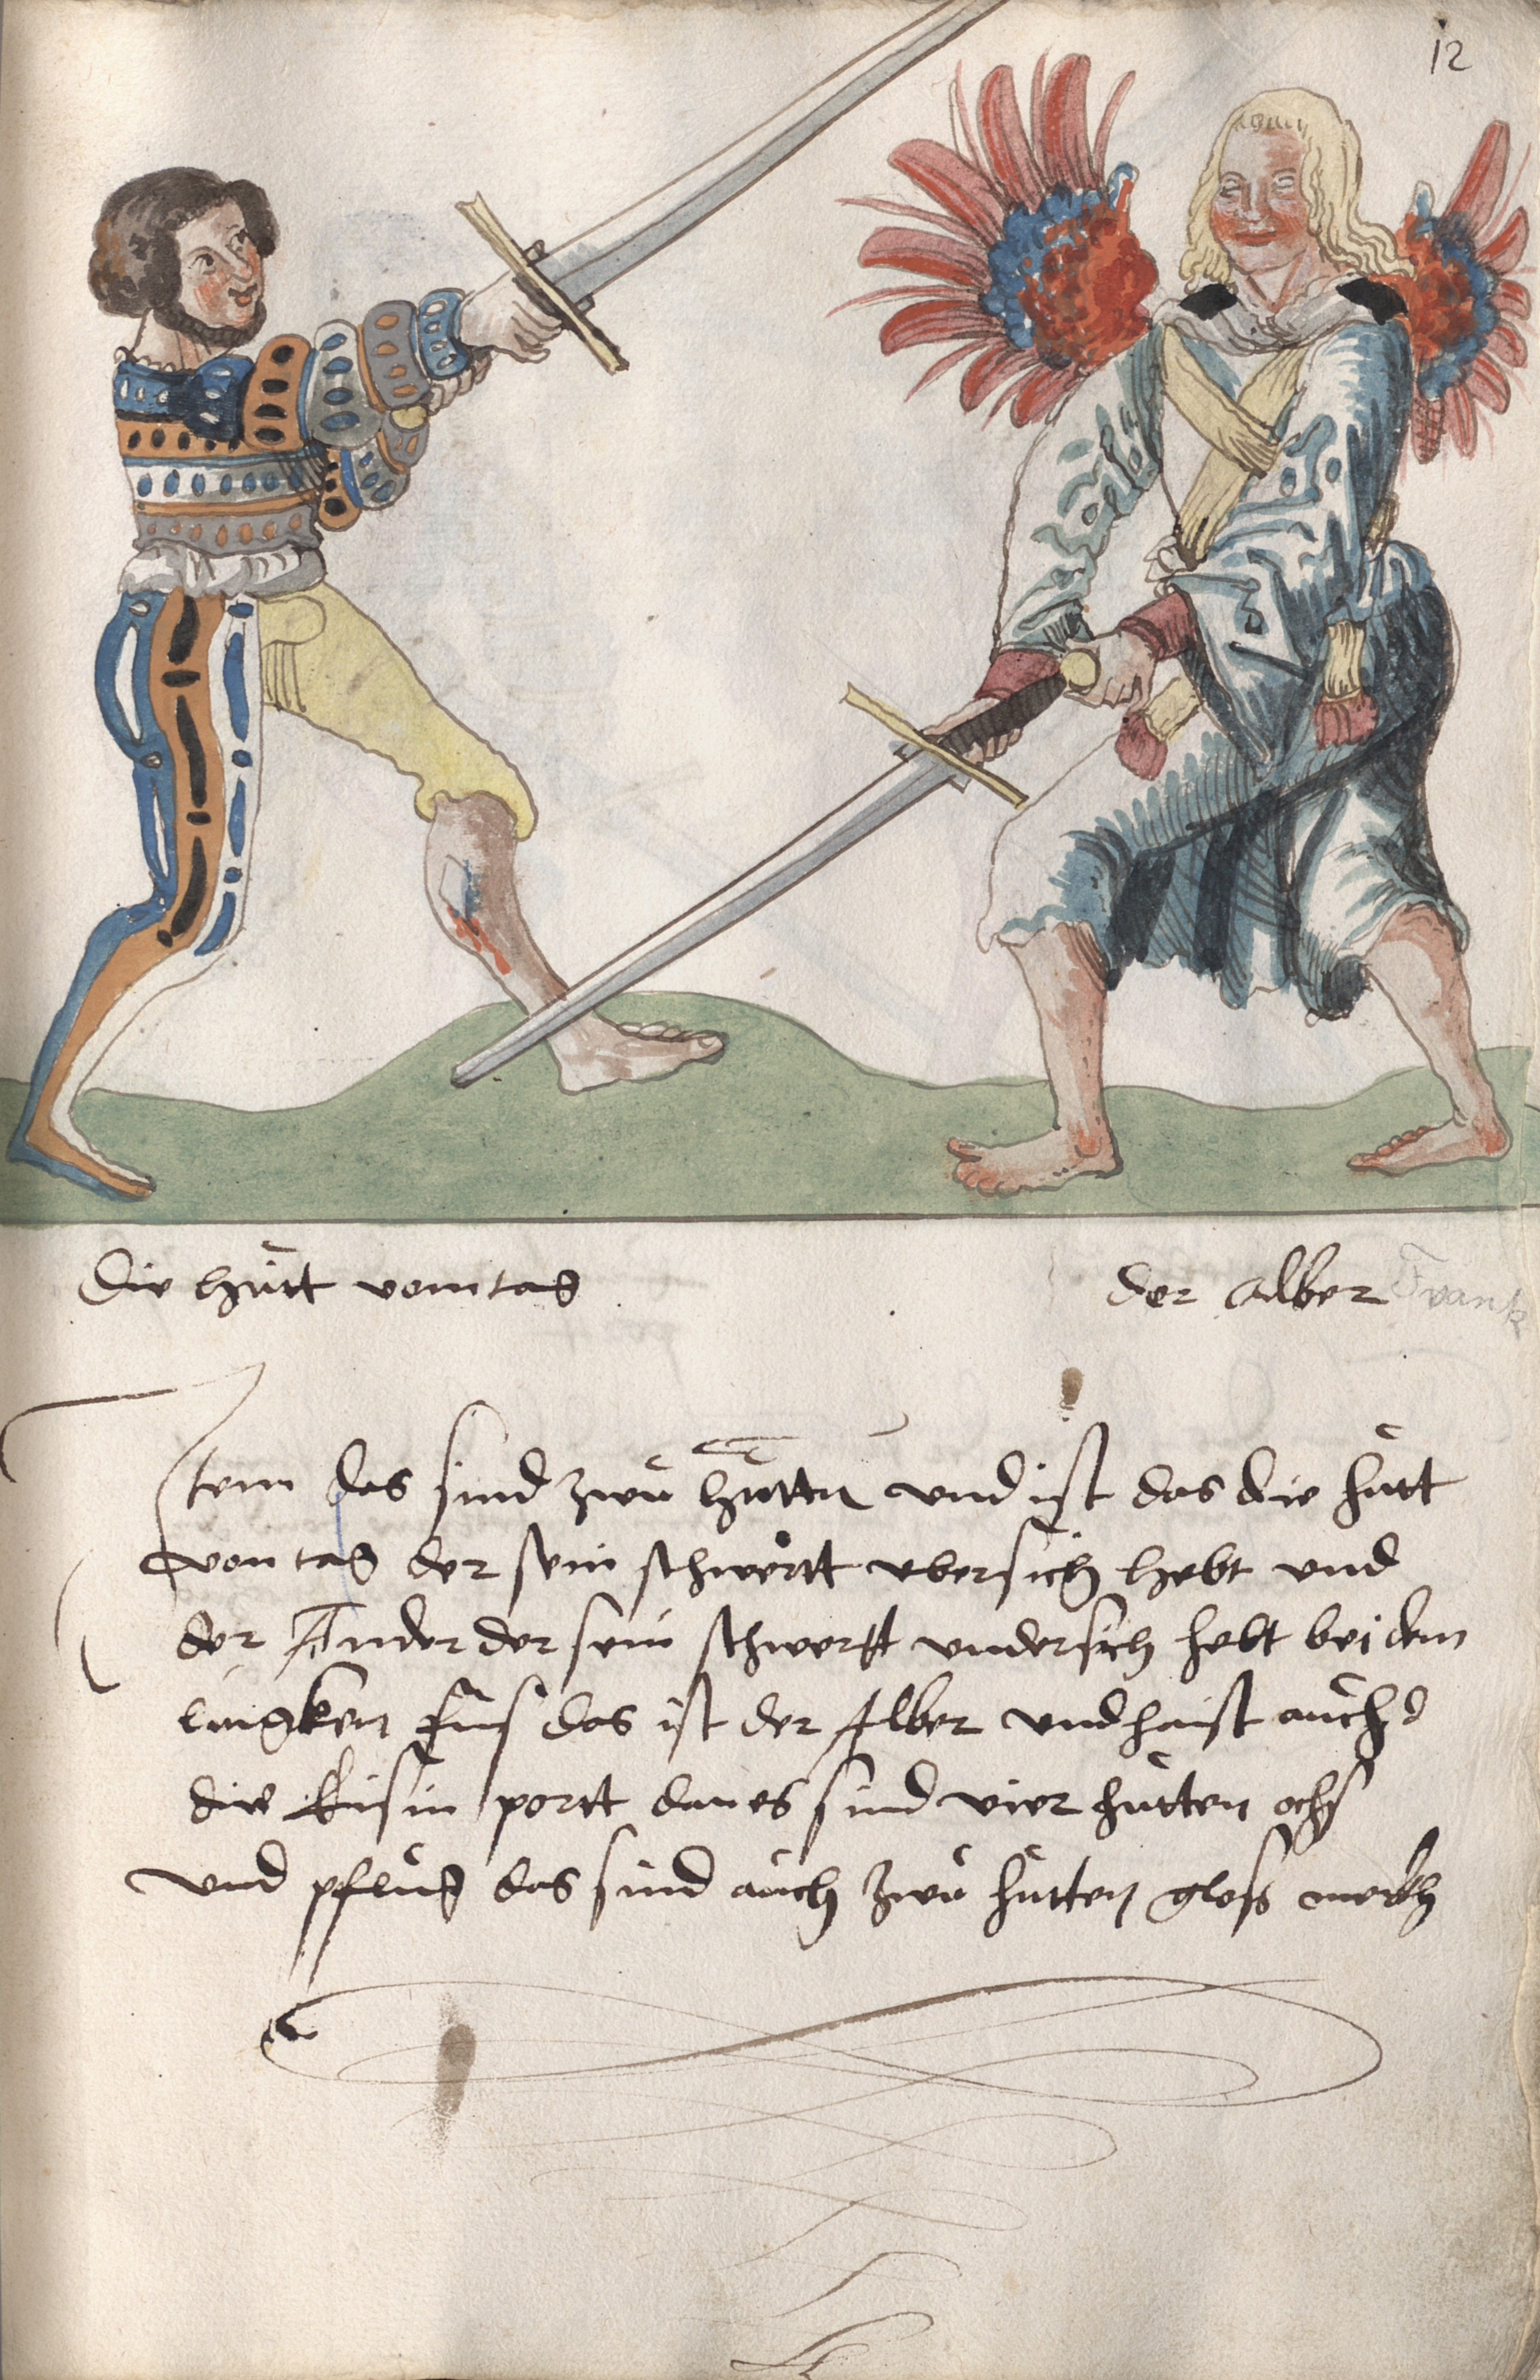 12
die hůtt vom tag
der alber Frank
Item das sind zwů hůttn und ist das die hůtt
von tag der sein schwertt ubersich hebt und
der Ander der sein schwertt undersich hebt bei dem
lingken fuͦs das ist der Alber und haist aůch
die Eisin portt dan es sind vier hůtten ochs
und pflůg das sind aůch zwů hůtten glosß merkh